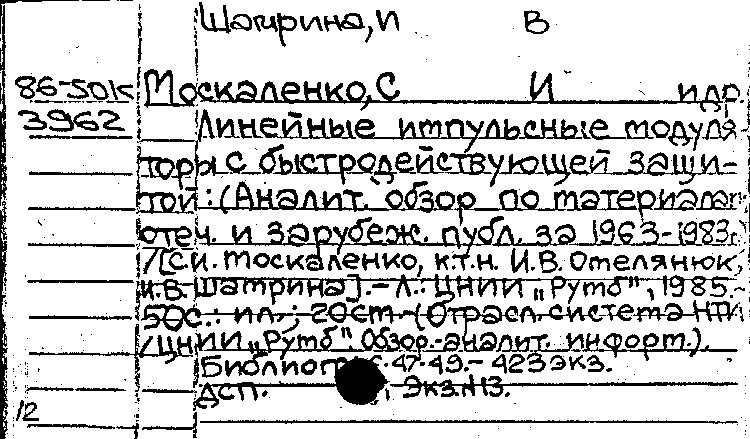 Шатрина, И В
86-501к Москаленко, С И идр.
3962 Линейные импульсные модуля-
торы с быстродействующей защи-
той: (Аналит. обзор по материалам
отеч. и зарубеж. публ. за 1963-1983г.)
/[С.И. Москаленко, к.т.н. И.В. Омелянюк,
И.В. Шатрина]. - Л.: ЦНИИ „Румб", 1985.-
50с.: ил.; 20см - (Отрасл. система НТИ
/ЦНИИ „Румб". Обзор.-аналит. информ.).
Библиогр с. 47-49. - 423 экз.
ДСП. Экз.№13.
12